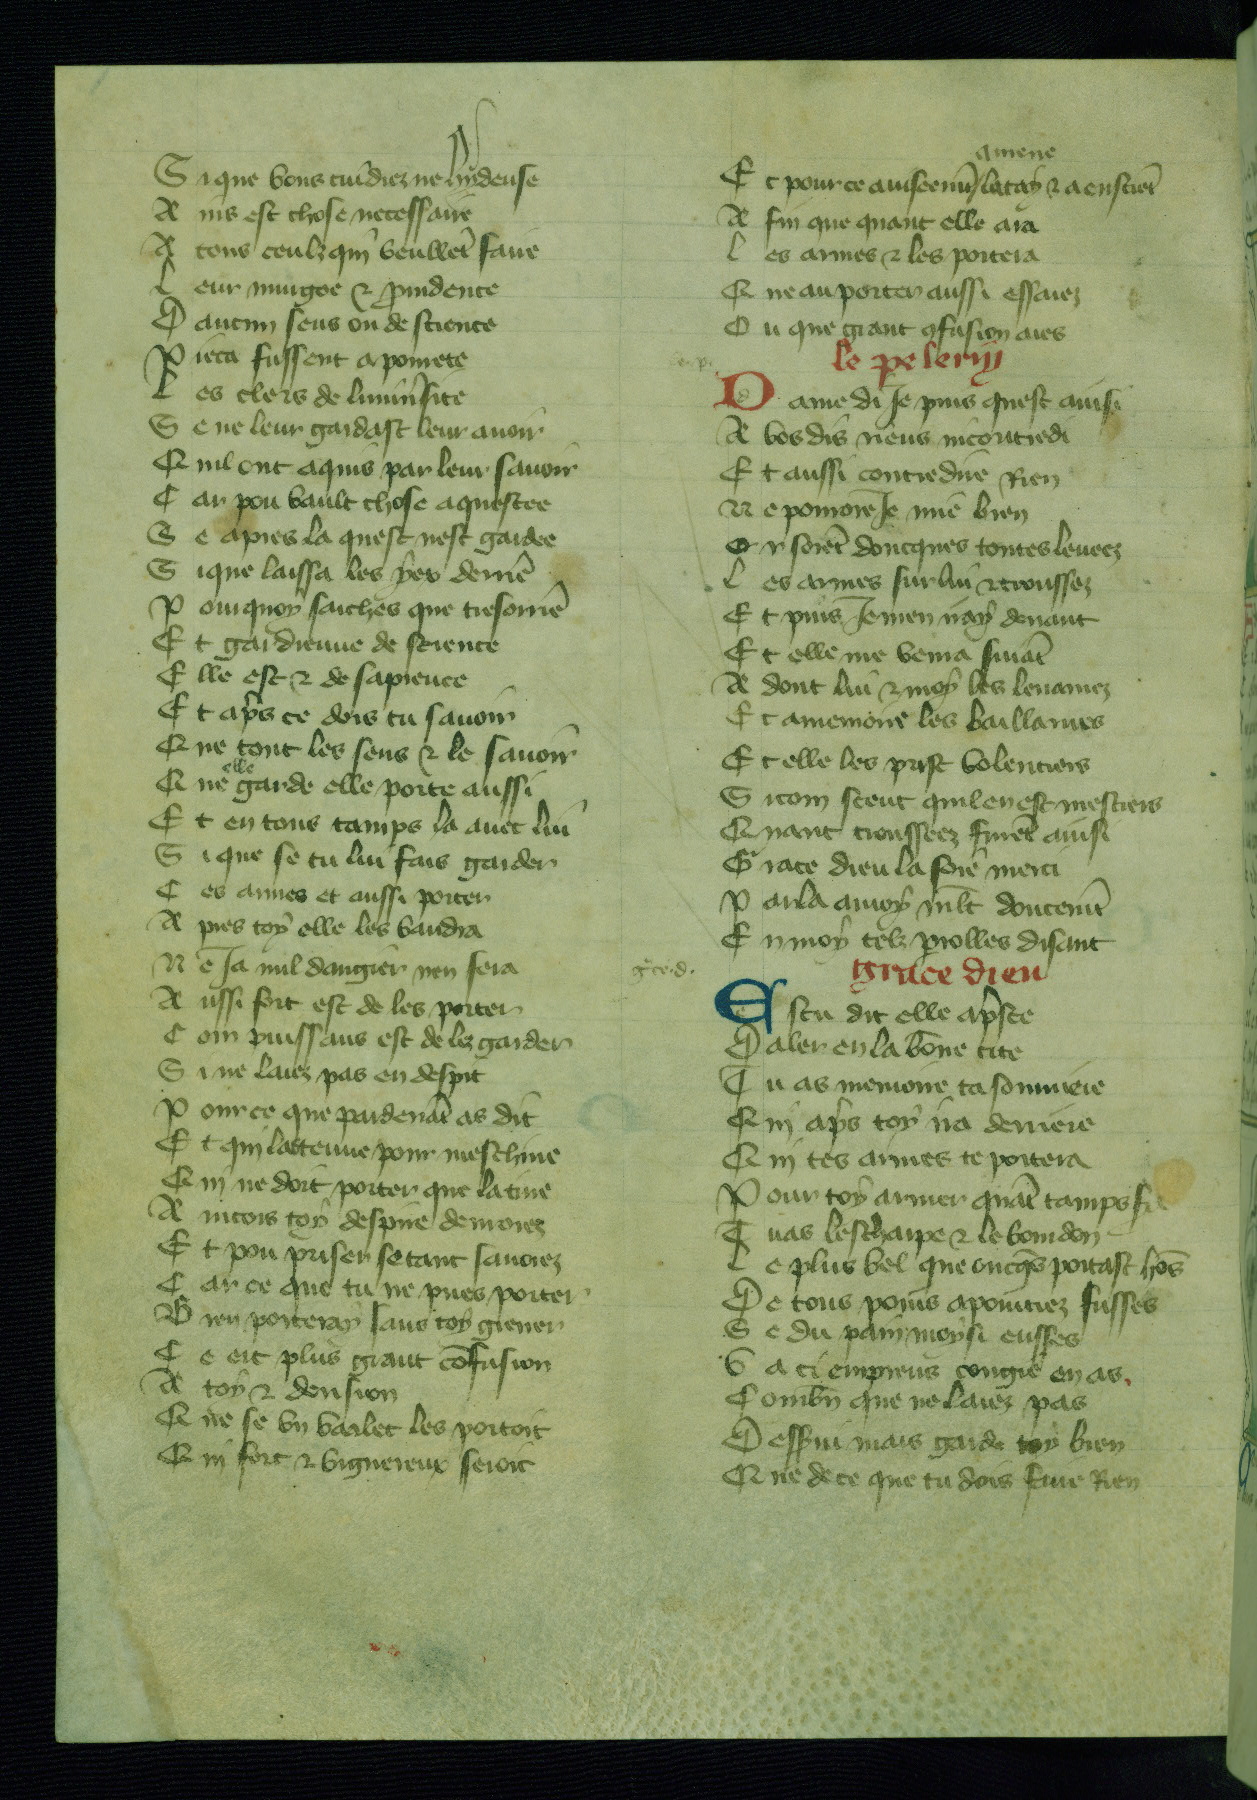 Si que vous cuidiez ne hydeuse
Ains est chose necessaire
A tous ceulz qui veullēt faire
Leur muigoe & prudence
Daucun sens ou de science
Pieca fussent a pourete
Les clers de luniūsite
Se ne leur gardast leur auoir
Quil ont aquis par leur sauoir
Car pou vault chose aquestee
Se apres la quest nest gardee
Si que laissa les yex derriē
Pourquoy saiches que tresorriē
Et gardienne de science
Elle est & de sapience
Et ap̄s ce dois tu sauoir
Que tout les sens & le sauoir
Que elle garde elle porte aussi
Et en tous tamps la auec lui
Si que se tu lui fais garder
Ces armes et aussi porter
Apres toy elle les vaudra
Ne Ja nul dangier nen fera
Aussi fort est de les porter
Com puissans est de lez garder
Si ne laiez pas en despit
Pour ce que pardeuāt as dit
Et qui lastenue pour meschine
Qui ne doit porter que la tine
Aincois toy despire deuroiez
Et pou priser se tant sauoiez
Car ce que tu ne pues porter
Bien porteray sans toy greuer
Ce est plus grant cōfusion
A toy & derision
Que se vn varlet les portoit
Qui fort & viguereux seroit
amene
Et pource auiseemt̄ latay & a ensciēt
Afin que quant elle ara
Les armes & les portera
Que au porter aussi essaiez
Ou que grant ꝯfusion aies
le pelerin
Dame di Je puis quest ainsi
A vos dis riens nicontredi
Et aussi contredire Rien
Ne pourroie Je miē bien
Or soiēt doncques toutes leueez
Les armes sur lui & troussez
Et puis Je men iray deuant
Et elle me venra suiāt
Adont lui & moy les leuamez
Et a memoire les baillames
Et elle les prist volentiers
Si com sceut quil en est mestiers
Quant trousseez furēt ainsi
Grace dieu la soie merci
Parla a moy ml̄t doucemt̄
En moy telz parolles disant
g͛ce.d.
grace dieu
Estu dit elle ap̄ste
Daler en la bōne cite
Tu as memoire ta sommiere
Qui ap̄s toy ira derriere
Qui tes armes te portera
Pour toy armer quāt tamps
Tu as leschaipe & le bourdon
Le plus bel que oncq̄s portast hōs
De tous poins apointiez fusses
Se du pain moysi eusses
Va ci empreus congie en as.
Combn̄ que ne laiez pas
Desserui mais garde toy bien
Que de ce que tu dois faire Rien